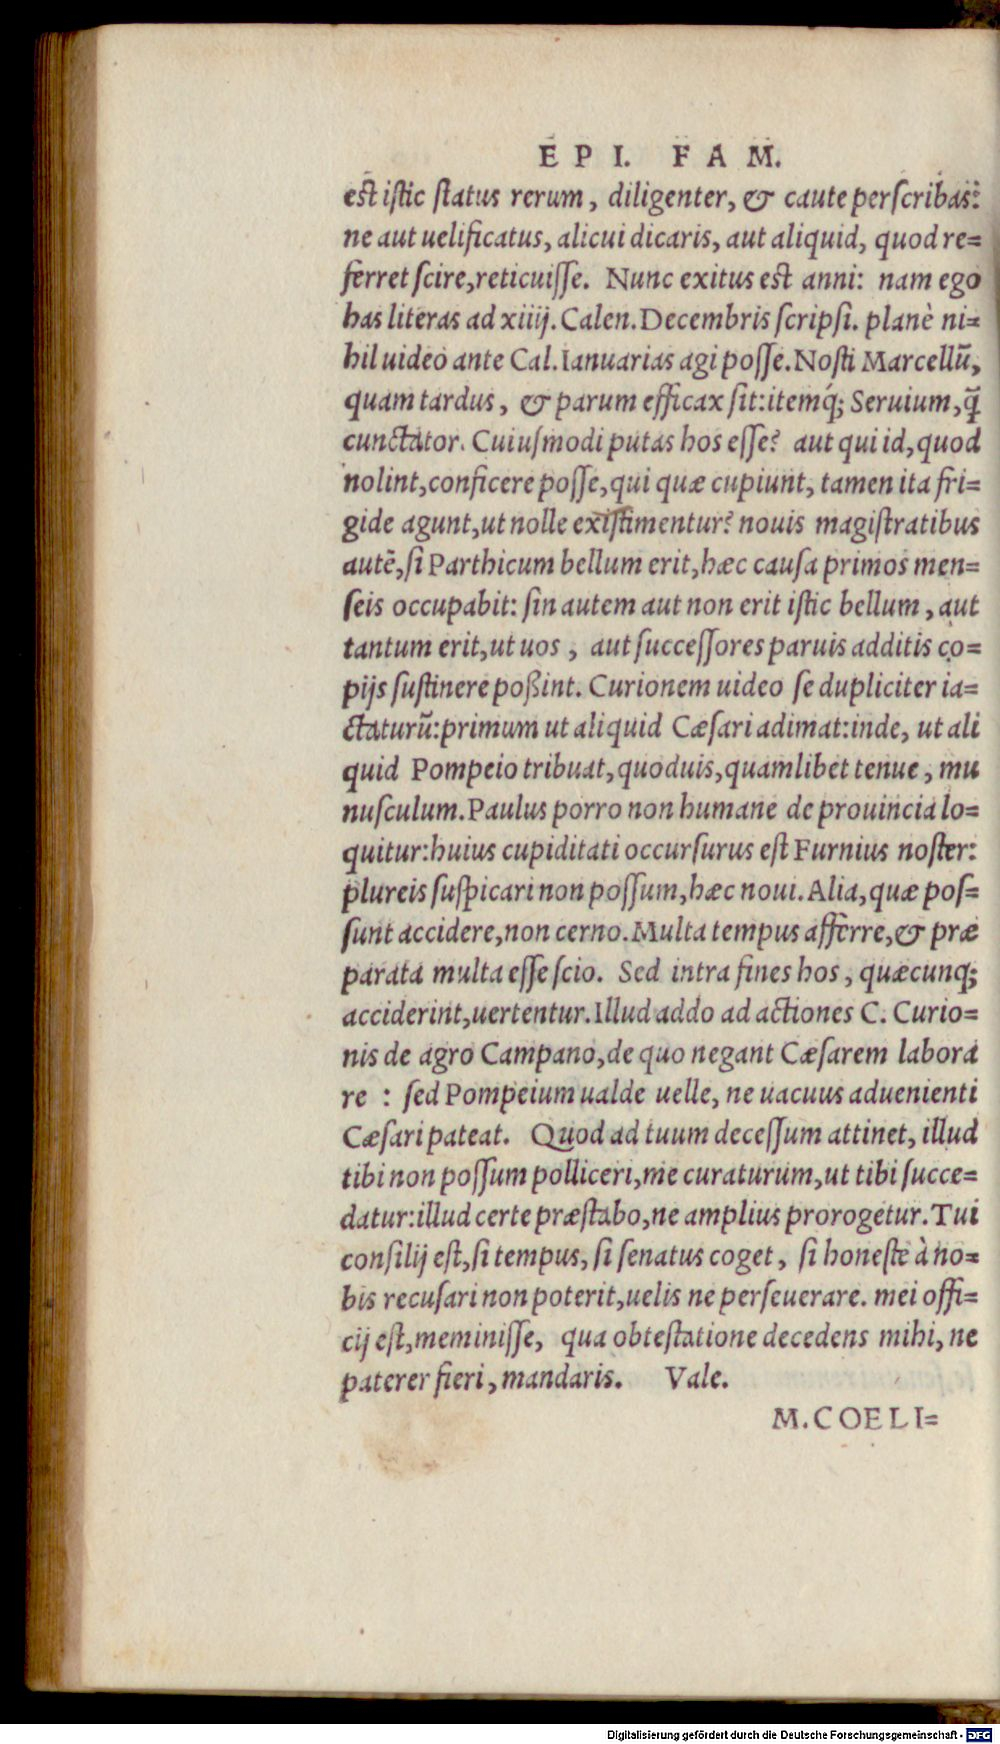 EPI. FAM.
est istic status rerum, diligenter, & caute perscribas:
ne aut uelificatus, alicui dicaris, aut aliquid, quod re=
ferret scire, reticuisse. Nunc exitus est anni: nam ego
has literas ad xiiij. Calen. Decembris scripsi. planè ni=
hil uideo ante Cal. Ianuarias agi posse. Nosti Marcellū,
quam tardus, & parum efficax sit: itemq́; Seruium, q̄
cunctator. Cuiusmodi putas hos esse? aut qui id, quod
nolint, conficere posse, qui quæ cupiunt, tamen ita fri=
gide agunt, ut nolle existimentur? nouis magistratibus
autē, si Parthicum bellum erit, hæc causa primos men=
seis occupabit: sin autem aut non erit istic bellum, aut
tantum erit, ut uos, aut successores paruis additis co=
pijs sustinere poßint. Curionem uideo se dupliciter ia=
ctaturū: primum ut aliquid Cæsari adimat: inde, ut ali
quid Pompeio tribuat, quoduis, quamlibet tenue, mu
nusculum. Paulus porro non humane de prouincia lo=
quitur: huius cupiditati occursurus est Furnius noster:
plureis suspicari non possum, hæc noui. Alia, quæ pos=
sunt accidere, non cerno. Multa tempus afferre, & præ
parata multa esse scio. Sed intra fines hos, quæcunq;
acciderint, uertentur. Illud addo ad actiones C. Curio=
nis de agro Campano, de quo negant Cæsarem labora
re : sed Pompeium ualde uelle, ne uacuus aduenienti
Cæsari pateat. Quod ad tuum decessum attinet, illud
tibi non possum polliceri, me curaturum, ut tibi succe=
datur: illud certe præstabo, ne amplius prorogetur. Tui
consilij est, si tempus, si senatus coget, si honeste à no=
bis recusari non poterit, uelis ne perseuerare. mei offi=
cij est, meminisse, qua obtestatione decedens mihi, ne
paterer fieri, mandaris. Vale.
M. COELI=
Digitalisierung gefördert durch die Deutsche Forschungsgemeinschaft - DFG